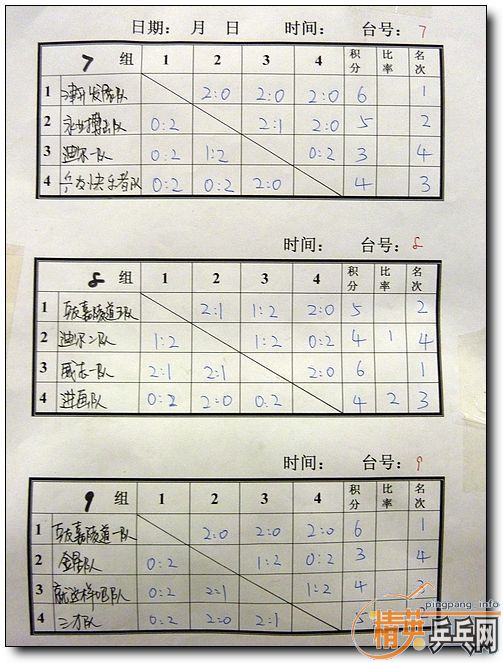 日期： 月 日 时间： 台号：7
7 组 1 2 3 4 积分 比率 名次
1 津开发区队 2:0 2:0 2:0 6 1
2 永业搏击队 0:2 2:1 2:0 5 2
3 迪尔一队 0:2 1:2 0:2 3 4
4 乒友快乐者队 0:2 0:2 2:0 4 3
时间： 台号：8
8 组 1 2 3 4 积分 比率 名次
1 嘉陵道3队 2:1 1:2 2:0 5 2
2 迪尔二队 1:2 1:2 0:2 4 1 4
3 威志一队 2:1 2:1 2:0 6 1
4 进画队 0:2 2:0 0:2 4 2 3
时间： 台号：9
9 组 1 2 3 4 积分 比率 名次
1 嘉陵道一队 2:0 2:0 2:0 6 1
2 队 0:2 1:2 0:2 3 4
3 就这样吧队 0:2 2:1 1:2 4
4 三才队 0:2 2:0 2:1
pingpang.info
精英乒乓网